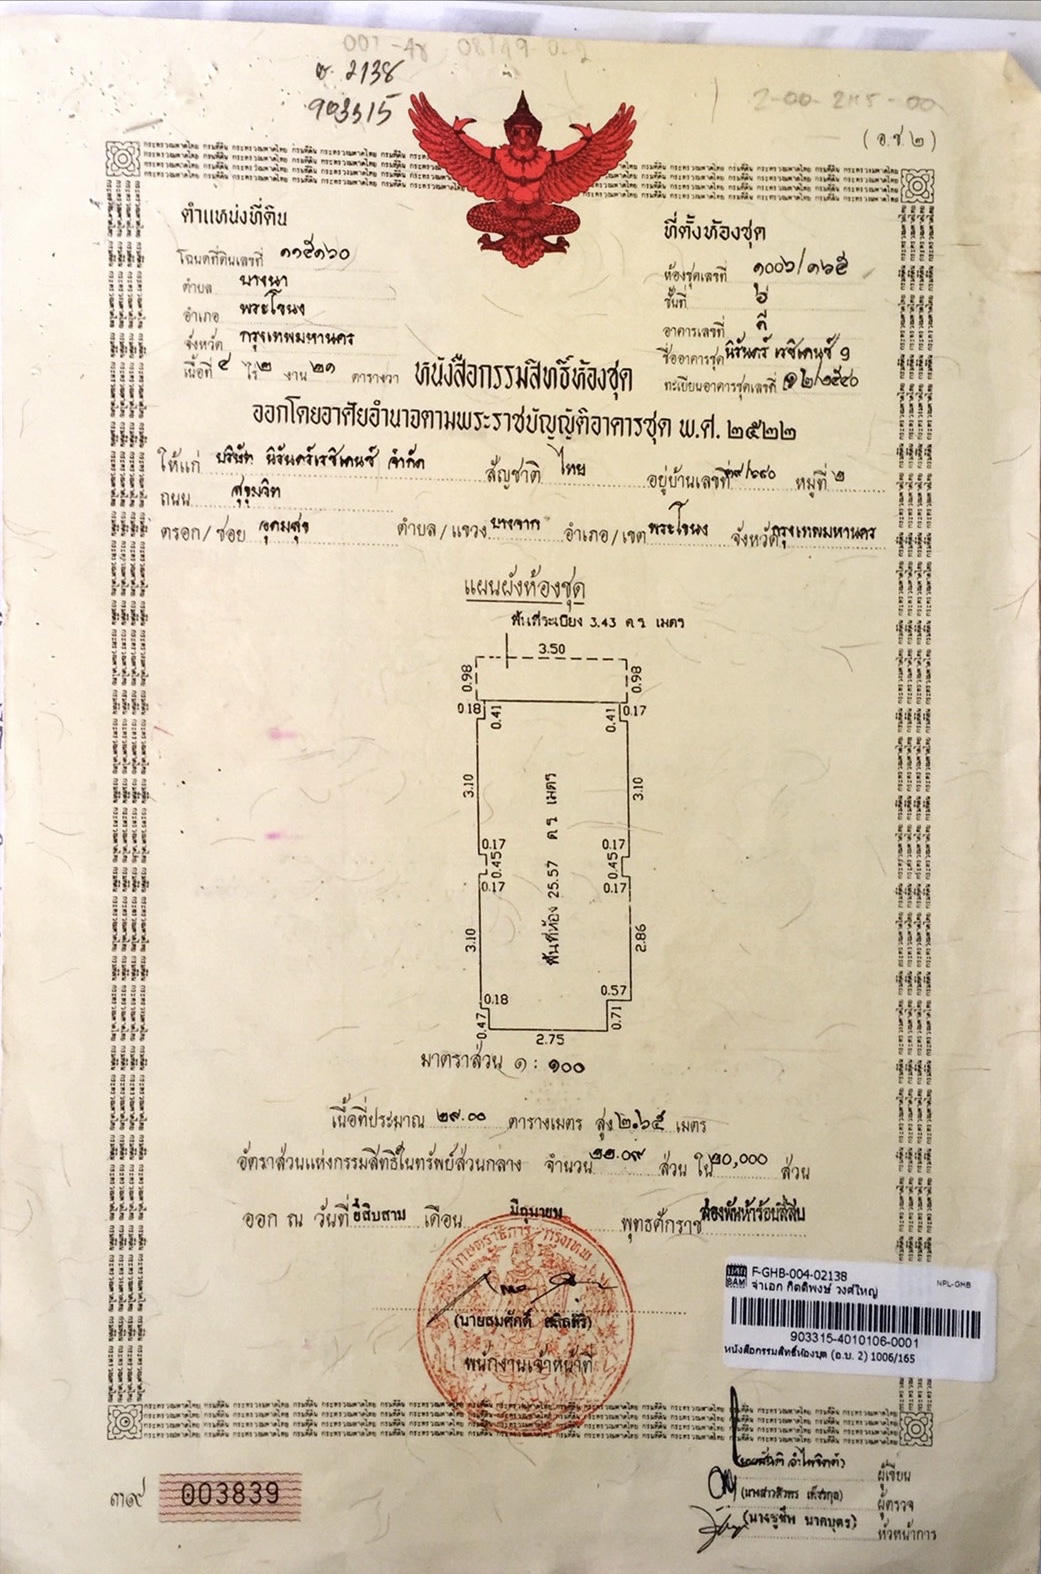 001-48 08149-0-2
ช. 2138
903315
2-00-2115-00
(อ.ช.๒)
ตำแหน่งที่ดิน
โฉนดที่ดินเลขที่ ๑๑๕๑๖๐
ตำบล บางนา
อำเภอ พระโขนง
จังหวัด กรุงเทพมหานคร
เนื้อที่ ๔ ไร่ ๒ งาน ๒๑ ตารางวา
ที่ตั้งห้องชุด
ห้องชุดเลขที่ ๑๐๐๖/๑๖๕
ชั้นที่ ๖
อาคารเลขที่ ดี
ชื่ออาคารชุด นิรันดร์ เรซิเดนซ์ ๑
ทะเบียนอาคารชุดเลขที่ ๑๒/๒๕๔๐
หนังสือกรรมสิทธิ์ห้องชุด
ออกโดยอาศัยอำนาจตามพระราชบัญญัติอาคารชุด พ.ศ. ๒๕๒๒
ให้แก่ บริษัท นิรันดร์เรซิเดนซ์ จำกัด สัญชาติ ไทย อยู่บ้านเลขที่ ๓๙/๖๙๐ หมู่ที่ ๒
ถนน สุขุมวิท
ตรอก/ซอย อุดมสุข ตำบล/แขวง บางจาก อำเภอ/เขต พระโขนง จังหวัด กรุงเทพมหานคร
แผนผังห้องชุด
พื้นที่ระเบียง 3.43 ตร เมตร
3.50
0.98 0.98
0.18 0.41 0.41 0.17
3.10 3.10
0.17 0.17
0.45 0.45
0.17 0.17
พื้นที่ห้อง 25.57 ตร เมตร
3.10 2.86
0.18 0.57
0.47 0.71
2.75
มาตราส่วน ๑ : ๑๐๐
เนื้อที่ประมาณ ๒๙.๐๐ ตารางเมตร สูง ๒.๖๕ เมตร
อัตราส่วนแห่งกรรมสิทธิ์ในทรัพย์ส่วนกลาง จำนวน ๒๒.๐๙ ส่วน ใน ๒๐,๐๐๐ ส่วน
ออก ณ วันที่ ยี่สิบสาม เดือน มิถุนายน พุทธศักราช สองพันห้าร้อยสี่สิบ
(นายสมศักดิ์ สถิลศิริ)
พนักงานเจ้าหน้าที่
BAM
F-GHB-004-02138 NPL-GHB
จ่าเอก กิตติพงษ์ วงศ์ใหญ่
903315-4010106-0001
หนังสือกรรมสิทธิ์ห้องชุด (อ.ช. 2) 1006/165
ผู้เขียน
ผู้ตรวจ
(นางชูชีพ นาคบุตร) หัวหน้าการ
๓๑๙ 003839